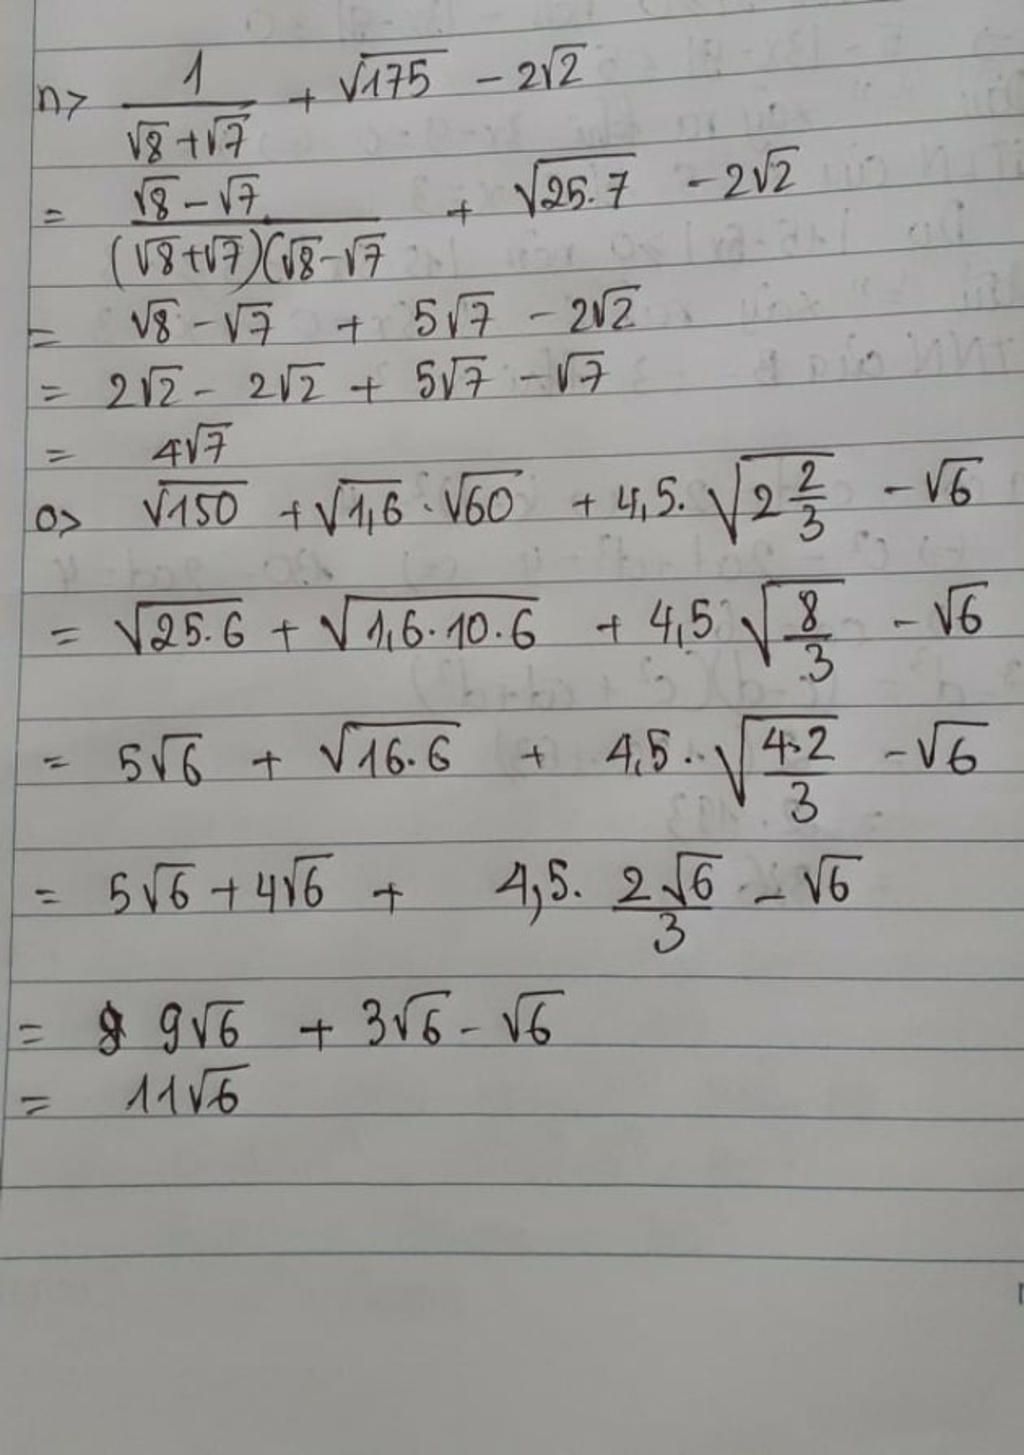 n> 1/(√8+√7) + √175 - 2√2
= (√8-√7)/((√8+√7)(√8-√7) + √25.7 - 2√2
= √8-√7 + 5√7 - 2√2
= 2√2 - 2√2 + 5√7 - √7
= 4√7
o> √150 + √1,6 . √60 + 4,5. √(2 2/3) - √6
= √25.6 + √1,6.10.6 + 4,5 √(8/3) - √6
= 5√6 + √16.6 + 4,5.. √(4.2/3) - √6
= 5√6 + 4√6 + 4,5. 2√6/3 - √6
= 9√6 + 3√6 - √6
= 11√6